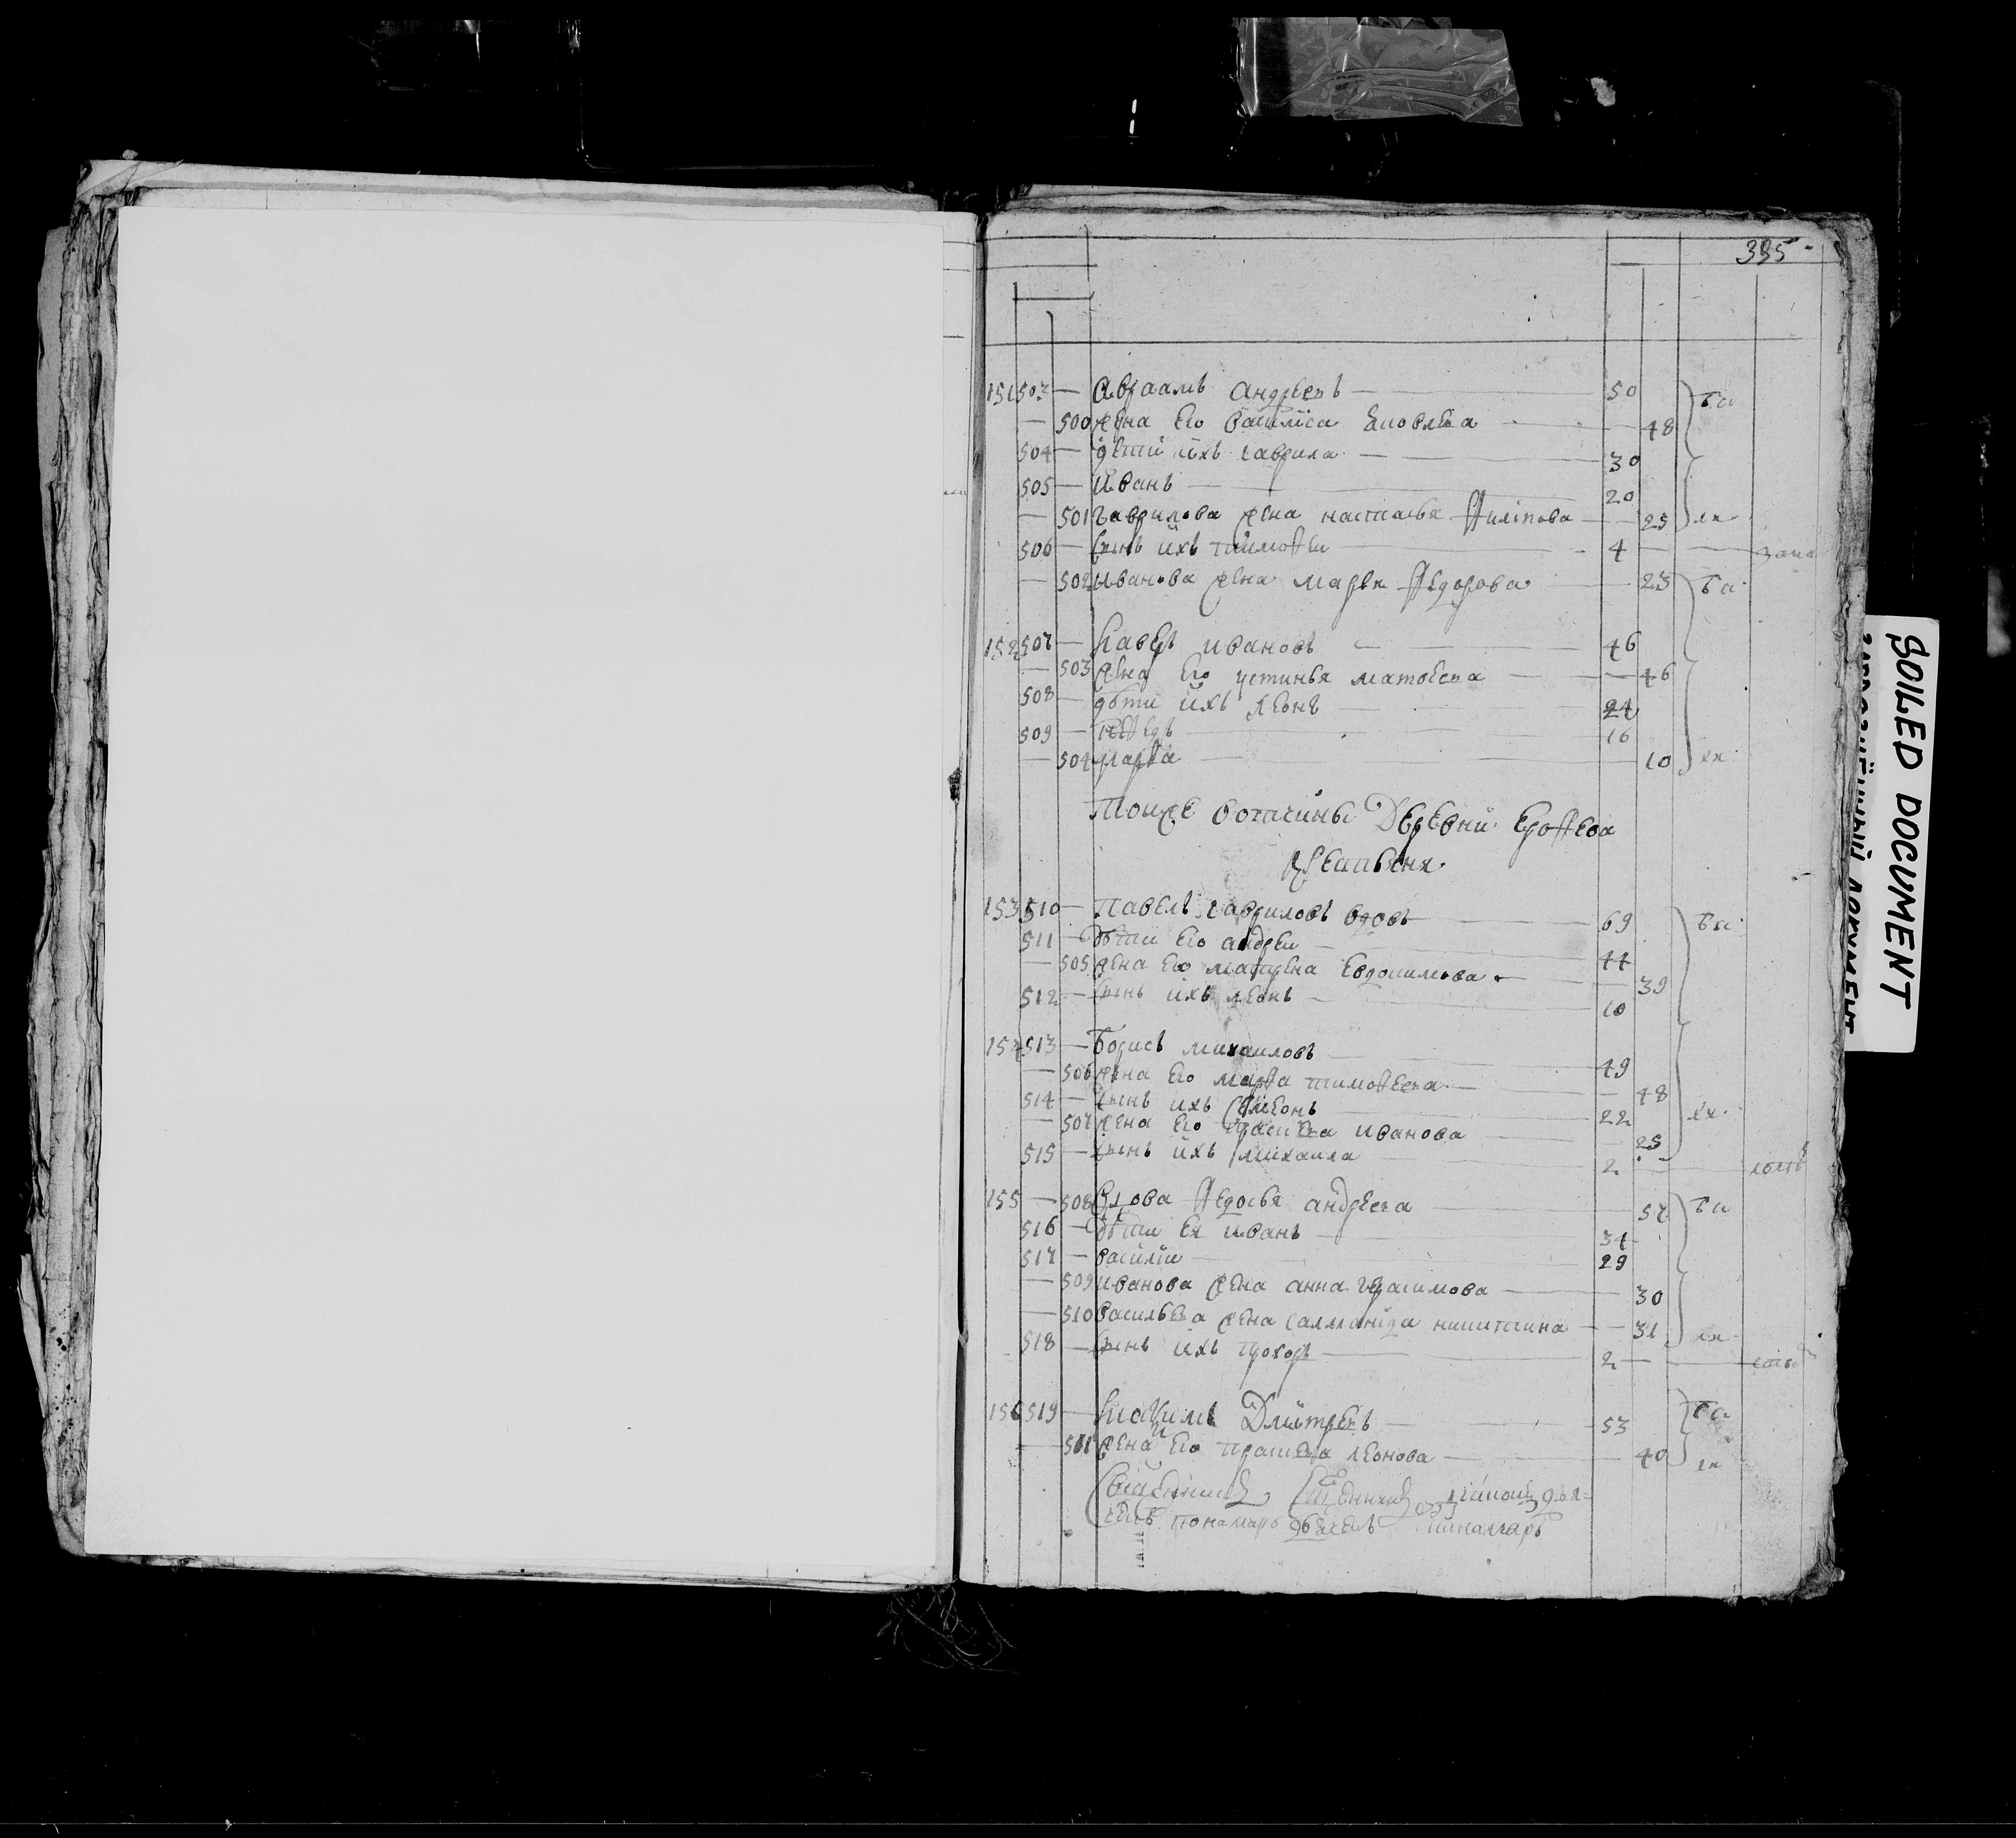 395
151 503 — Авраамъ Андреевъ — 50
— 500 жена его Василиса Яковлева — 48
504 — дѣти ихъ Гаврила — 30
505 — Иванъ — 20
— 501 Гаврилова жена Настасья Ѳилипова — 25
506 — сынъ ихъ Тимоѳеи — 4
— 502 Иванова жена Марья Ѳедорова — 23
152 507 — Павелъ Ивановъ — 46
— 503 жена его Устинья Матвеева — 46
508 — дѣти ихъ Леонъ — 24
509 — 16
— 504 Марѳа — 10
Тоижѣ вотчины Деревни Ероѳеева
крестьяня
153 510 — Павелъ Гавриловъ вдовъ — 69
511 — дѣти его Андреи — 44
— 505 жена его Матрена Евдокимова — 39
512 — сынъ ихъ Леонъ — 10
154 513 — Борисъ Михаиловъ — 49
— 506 жена его Марѳа Тимоѳеева — 48
514 — сынъ ихъ Симеонъ — 22
— 507 жена его Прасковья Иванова — 25
515 — сынъ ихъ Михаила — 2
155 — 508 Вдова Ѳедосья Андреева — 57
516 — дѣти ея Иванъ — 31
517 — Василiи — 29
— 509 Иванова жена Анна Герасимова — 30
— 510 Васильева жена Саломанида Никитина — 31
518 — сынъ ихъ Прохоръ — 2
156 519 — Дмитреевъ — 53
— 511 жена его Леонова — 40
пономарь пономарь
SOILED DOCUMENT